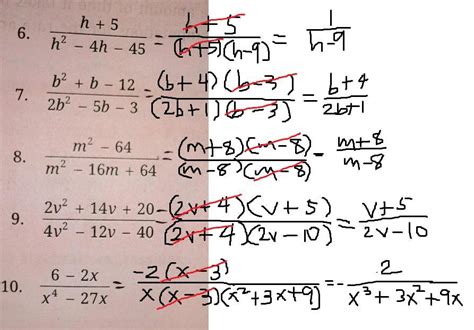 6. (h + 5)/(h² − 4h − 45) = (h+5)/((h+5)(h-9)) = 1/(h-9)
7. (b² + b − 12)/(2b² − 5b − 3) = ((b+4)(b-3))/((2b+1)(b-3)) = (b+4)/(2b+1)
8. (m² − 64)/(m² − 16m + 64) = ((m+8)(m-8))/((m-8)(m-8)) - (m+8)/(m-8)
9. (2v² + 14v + 20)/(4v² − 12v − 40) - ((2v+4)(v+5))/((2v+4)(2v-10)) = (v+5)/(2v-10)
10. (6 − 2x)/(x⁴ − 27x) = (-2(x-3))/(x(x-3)(x²+3x+9)) = - 2/(x³+3x²+9x)